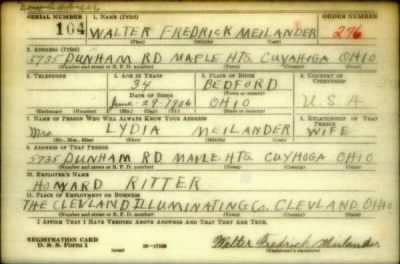 SERIAL NUMBER 1. NAME (Print) ORDER NUMBER
104 WALTER FREDRICK MEILANDER 276
(First) (Middle) (Last)
2. ADDRESS (Print)
5735 DUNHAM RD MAPLE HTS. CUYAHOGA OHIO
(Number and street or R. F. D. number) (Town) (County) (State)
3. TELEPHONE 4. AGE IN YEARS 5. PLACE OF BIRTH 6. COUNTRY OF CITIZENSHIP
34 BEDFORD
DATE OF BIRTH (Town or county)
June-29-1906 OHIO U.S.A
(Exchange) (Number) (Mo.) (Day) (Yr.) (State or country)
7. NAME OF PERSON WHO WILL ALWAYS KNOW YOUR ADDRESS 8. RELATIONSHIP OF THAT PERSON
Mrs LYDIA MEILANDER WIFE
(Mr., Mrs., Miss) (First) (Middle) (Last)
9. ADDRESS OF THAT PERSON
5735 DUNHAM RD MAPLE HTS. CUYHOGA OHIO
(Number and street or R. F. D. number) (Town) (County) (State)
10. EMPLOYER'S NAME
HOWARD RITTER
11. PLACE OF EMPLOYMENT OR BUSINESS
THE CLEVLAND ILLUMINATING Co. CLEVLAND. OHIO
(Number and street or R. F. D. number) (Town) (County) (State)
I AFFIRM THAT I HAVE VERIFIED ABOVE ANSWERS AND THAT THEY ARE TRUE.
REGISTRATION CARD
D. S. S. Form 1 Walter Fredrick Meilander